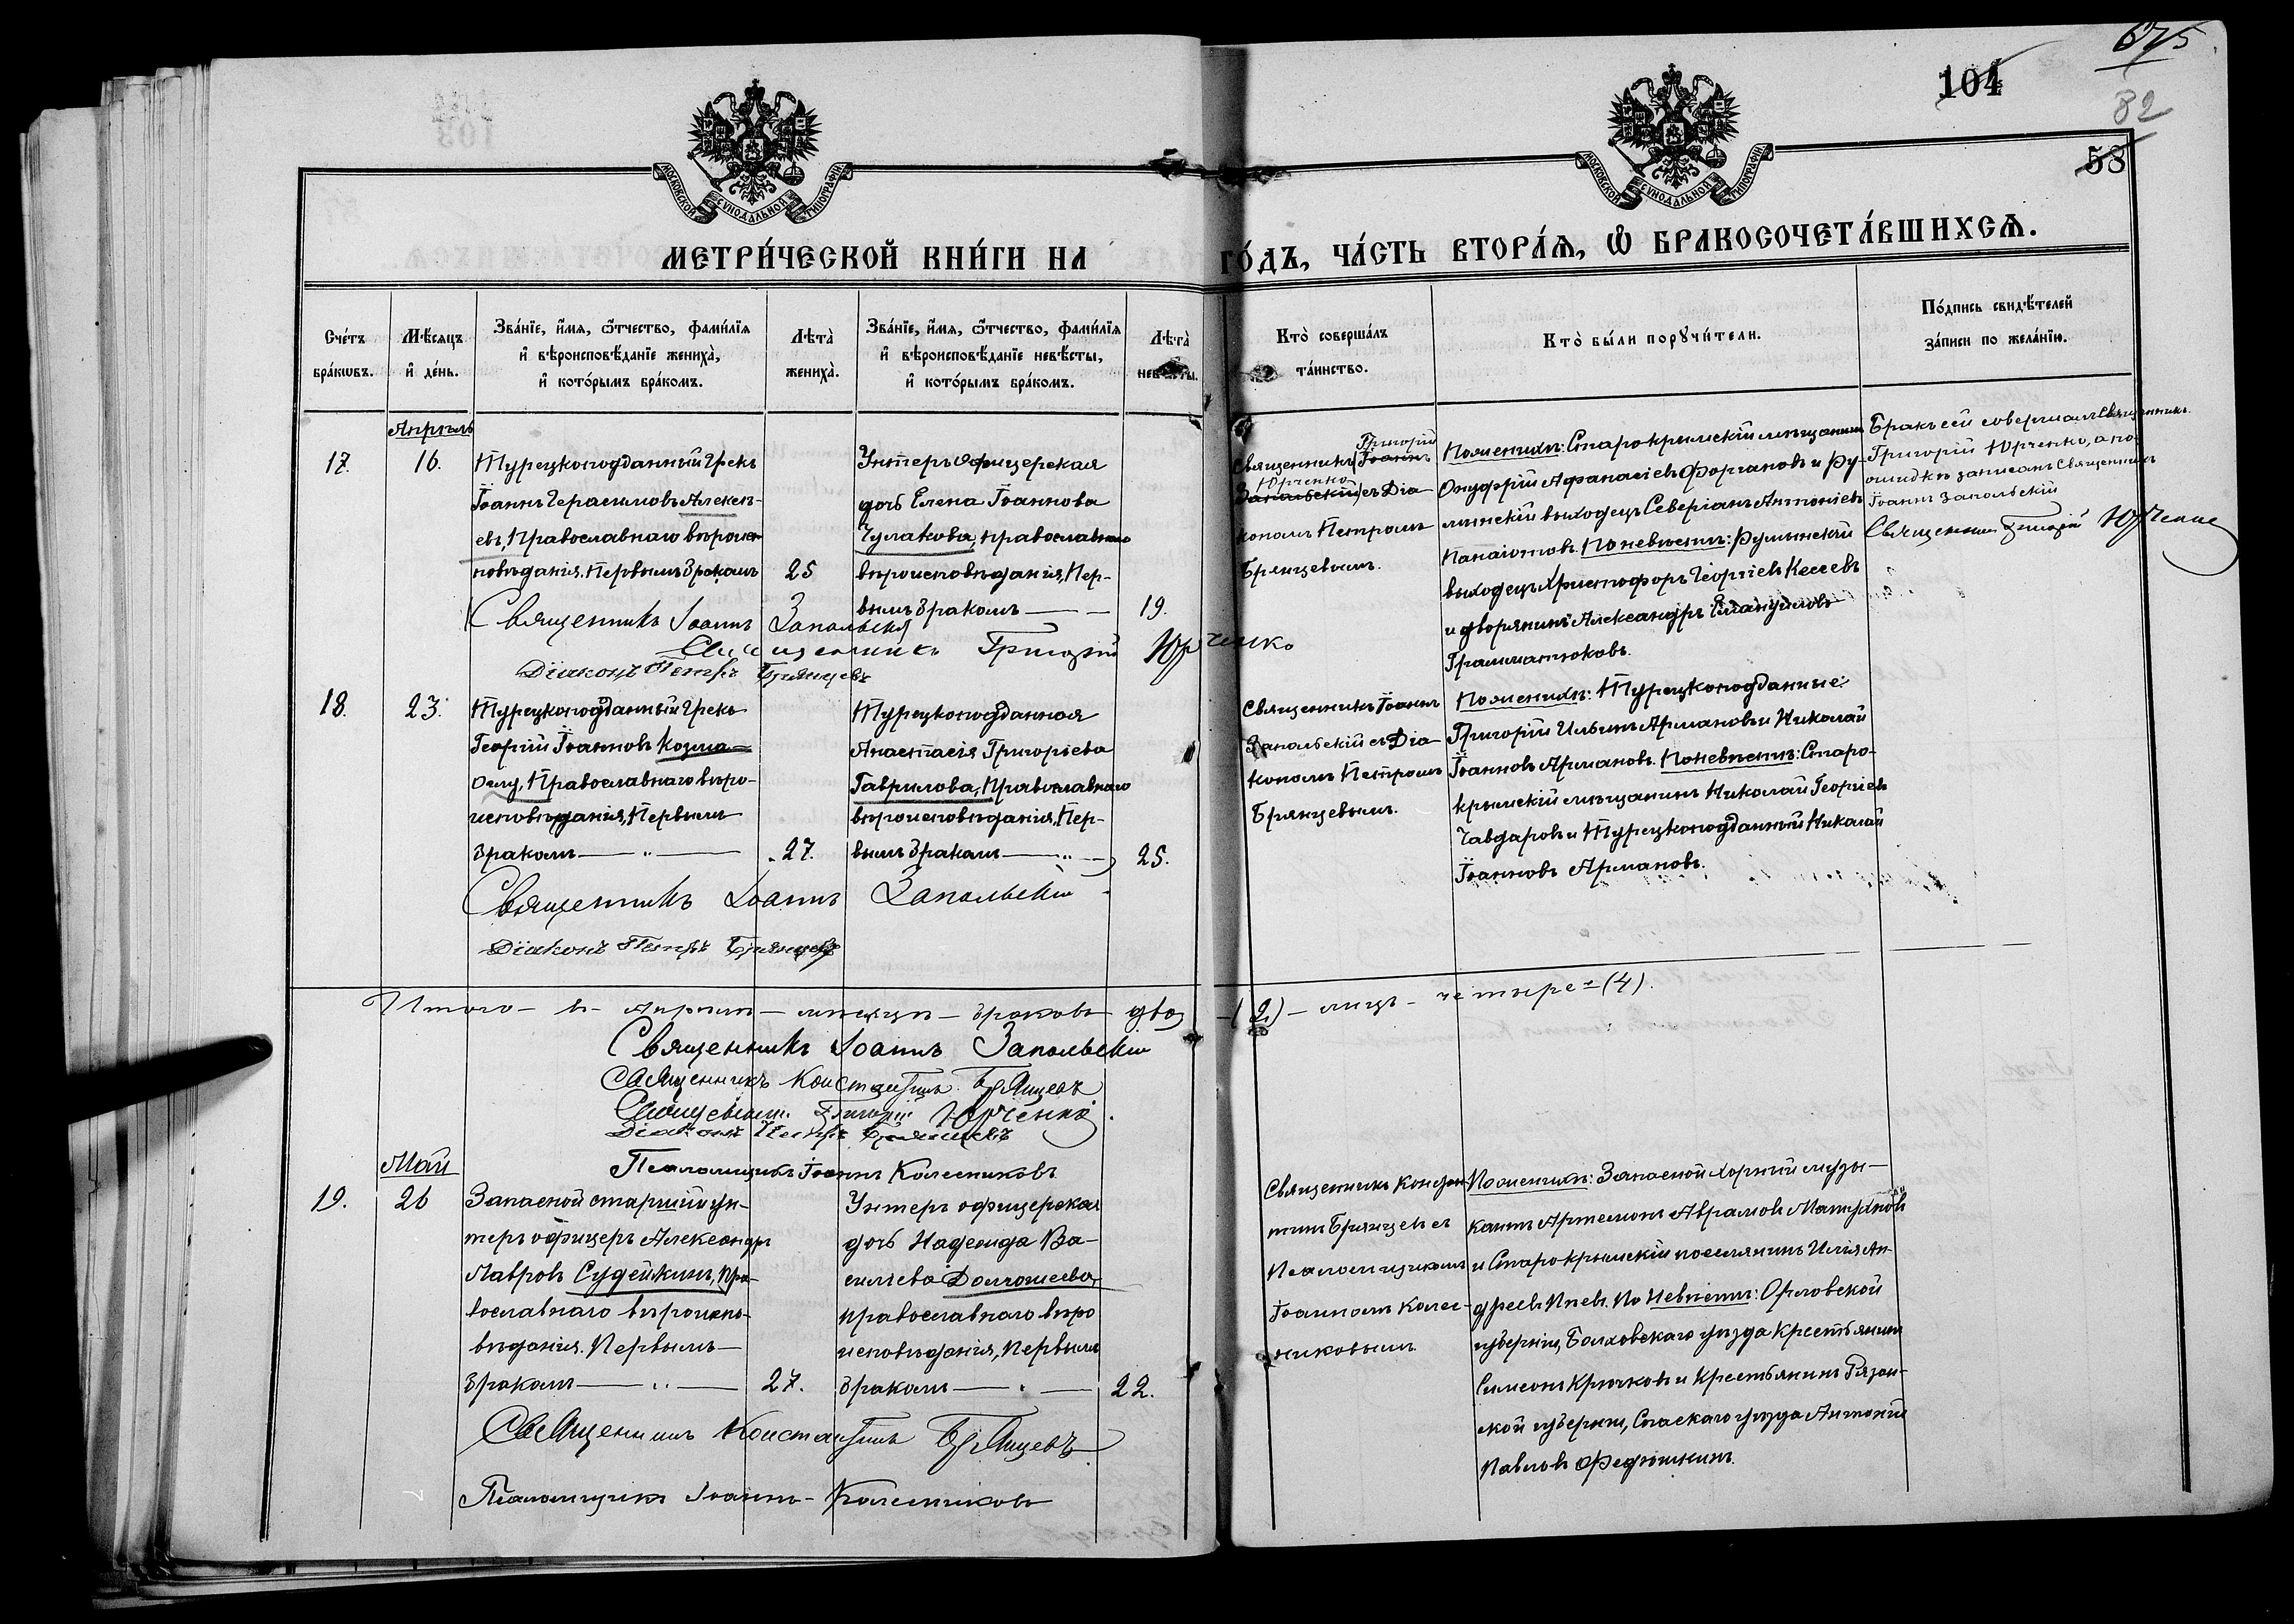 675
104
82
58
МОСКОВСКОЙ СУНОДАЛЬНОЙ ТИПОГРАФІИ.
МОСКОВСКОЙ СУНОДАЛЬНОЙ ТИПОГРАФІИ.
МЕТРИ́ЧЕСКОЙ КНИ́ГИ НА ГО́ДЪ, ЧА́СТЬ ВТОРА́Я, Ѿ БРАКОСОЧЕТА́ВШИХСЯ.
Сче́тъ
бра́кѡвъ.
Мѣ́сяцъ
и҆ де́нь.
Зва́нїе, и҆́мя, ѻ҆́тчество, фами́лїя
и҆ вѣроисповѣ́данїе жениха̀,
и҆ кото́рымъ бра́комъ.
Лѣта̀
жениха̀.
Зва́нїе, и҆́мя, ѻ҆́тчество, фами́лїя
и҆ вѣроисповѣ́данїе невѣ́сты,
и҆ кото́рымъ бра́комъ.
Лѣта̀
невѣ́сты.
Кто̀ соверша́лъ
та́инство.
Кто̀ бы́ли порꙋчи́тели.
По́дпись свидѣ́телей
за́писи по жела́нїю.
Апрѣль
17.
16.
Турецкоподданный Грекъ
Іоаннъ Герасимовъ Алексѣ-
евъ, Православнаго вѣроис-
повѣданія, Первымъ бракомъ
25
Унтеръ Офицерская
дочь Елена Іоаннова
Чулакова, православнаго
вѣроисповѣданія, Пер-
вымъ бракомъ
19.
Григорій
Священникъ Іоаннъ
Юрченко
Запольскій съ Діа-
кономъ Петромъ
Брянцевымъ.
По женихѣ: Старокрымскій мѣщанинъ
Онуфрій Афанасіевъ Форгановъ и Ру-
мынскій выходецъ Северіанъ Антоніевъ
Панаіотовъ. По невѣстѣ: Румынскій
выходецъ Христофоръ Георгіевъ Кессевъ
и дворянинъ Александръ Еммануиловъ
Грамматиковъ.
Бракъ сей совершалъ Священникъ
Григорій Юрченко, а по
ошибкѣ записанъ Священникъ
Іоаннъ Запольскій
Священникъ Григорій Юрченко
Священникъ Іоаннъ Запольскій
Священникъ Григорій Юрченко
Діаконъ Петръ Брянцевъ
18.
23.
Турецкоподданный Грекъ
Георгій Іоанновъ Козма-
Оглу, Православнаго вѣро-
исповѣданія, Первымъ
бракомъ
27.
Турецкоподданная
Анастасія Григорьева
Гаврилова, Православнаго
вѣроисповѣданія, Пер-
вымъ бракомъ
25.
Священникъ Іоаннъ
Запольскій съ Діа-
кономъ Петромъ
Брянцевымъ.
По женихѣ: Турецкоподданные:
Григорій Ильинъ Армановъ и Николай
Іоанновъ Армановъ. По невѣстѣ: Старо-
крымскій мѣщанинъ Николай Георгіевъ
Чавдаровъ и Турецкоподданный Николай
Іоанновъ Армановъ.
Священникъ Іоаннъ Запольскій
Діаконъ Петръ Брянцевъ
Итого - въ - Апрѣлѣ - мѣсяцѣ - браковъ два - (2) - лицъ - четыре - (4).
Священникъ Іоаннъ Запольскій
Священникъ Константинъ Брянцевъ
Священникъ Григорій Юрченко.
Діаконъ Петръ Брянцевъ
Псаломщикъ Іоаннъ Колесниковъ
Май
19.
26
Запасной старшій ун-
теръ офицеръ Александръ
Лавровъ Судейкинъ, Пра-
вославнаго вѣроиспо-
вѣданія. Первымъ
бракомъ
27.
Унтеръ офицерская
дочь Надежда Ва-
сильева Долгошеева,
православнаго вѣро
исповѣданія, Первымъ
бракомъ
22.
Священникъ Констан-
тинъ Брянцевъ съ
Псаломщикомъ
Іоанномъ Колес-
никовымъ
По женихѣ: Запасной хорный музы-
кантъ Артемонъ Аврамовъ
и Старокрымскій поселянинъ Илія Ан-
дреевъ По Невѣстѣ: Орловской
губерніи, Болховскаго уѣзда Крестьянинъ
Симеонъ Крючковъ и Крестьянинъ Рязан-
ской губерніи, Спаскаго уѣзда Антоній
Павловъ Федюшкинъ.
Священникъ Константинъ Брянцевъ
Псаломщикъ Іоаннъ Колесниковъ